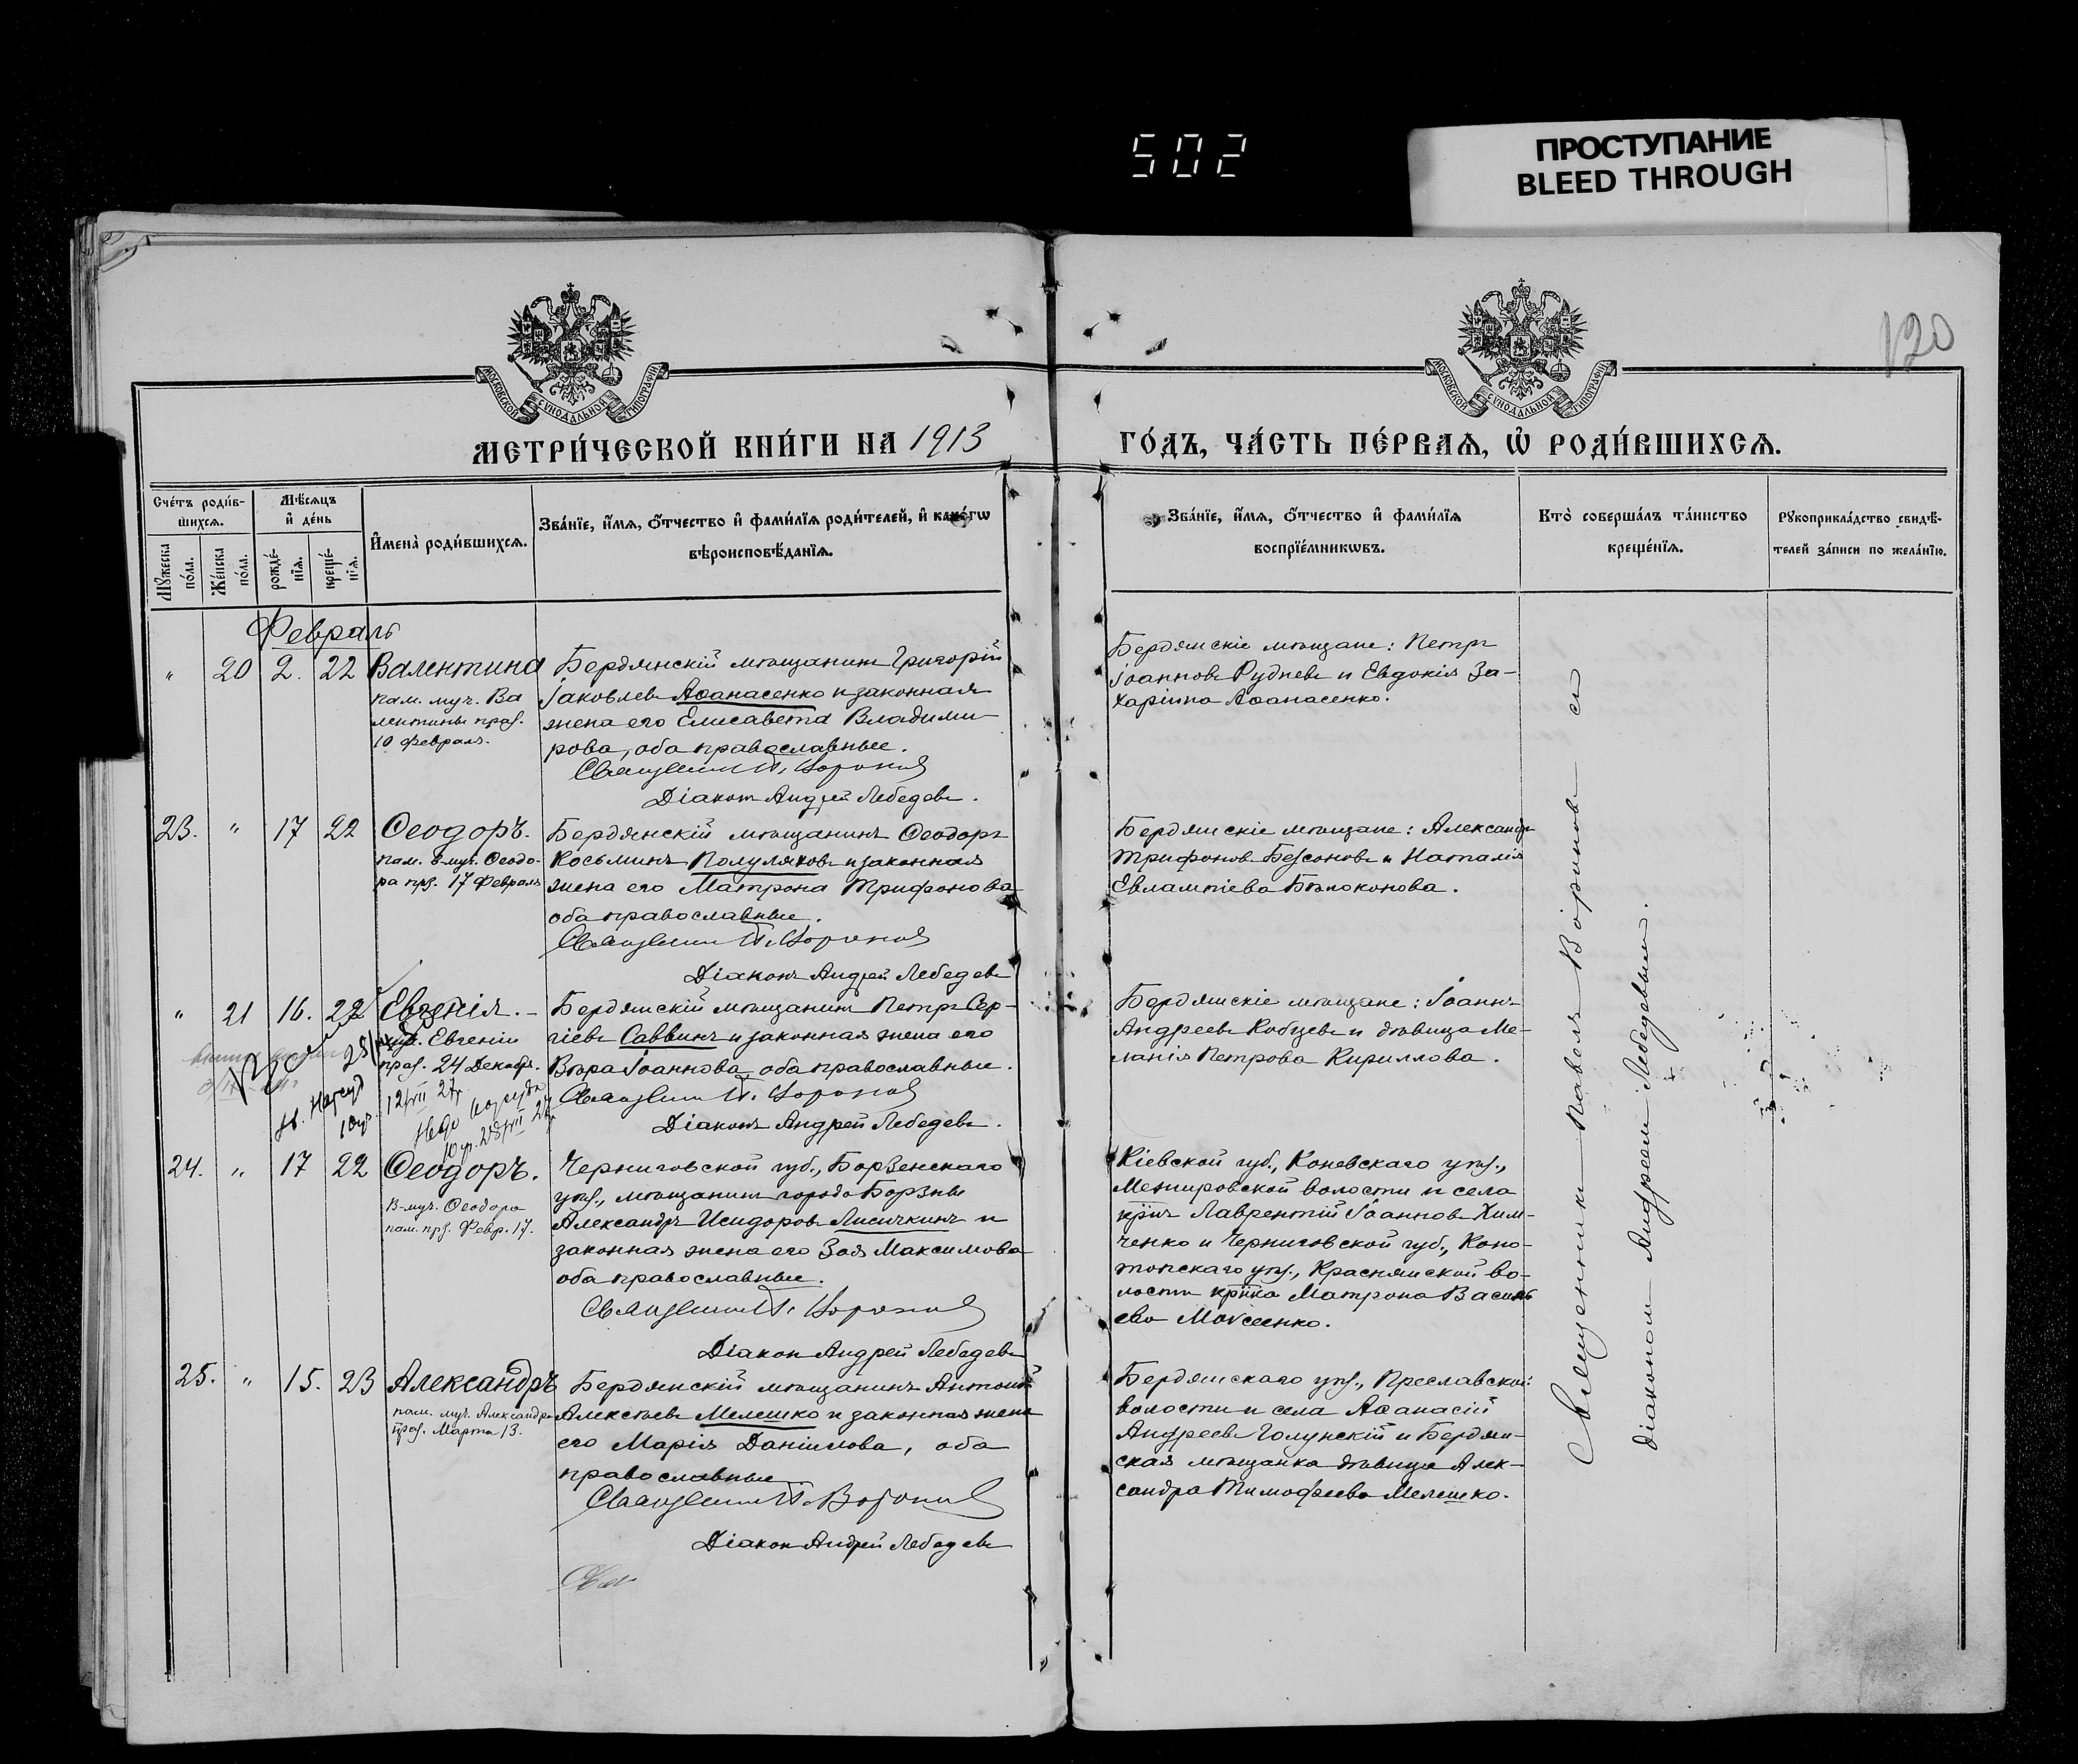 502
ПРОСТУПАНИЕ
BLEED THROUGH
120
МОСКОВСКОЙ СУНОДАЛЬНОЙ ТИПОГРАФІИ
МОСКОВСКОЙ СУНОДАЛЬНОЙ ТИПОГРАФІИ
МЕТРИ́ЧЕСКОЙ КНИ́ГИ НА 1913
ГО́ДЪ, ЧА́СТЬ ПЕ́РВАѦ, Ѽ РОДИ́ВШИХСѦ.
Сче́тъ роди́в-
шихсѧ.
Мꙋ́жеска
по́ла.
Же́нска
по́ла.
Мѣ́сѧцъ
и҆ де́нь
рожде́-
нїѧ.
креще́-
нїѧ.
И҆мена̀ роди́вшихсѧ.
Зва́нїе, и҆́мѧ, ѻ҆́тчество и҆ фами́лїѧ роди́телей, и҆ како́гѡ
вѣроисповѣ́данїѧ.
Зва́нїе, и҆́мѧ, ѻ҆́тчество и҆ фами́лїѧ
воспрїе́мникѡвъ.
Кто̀ соверша́лъ та́инство
креще́нїѧ.
Рꙋкоприкла́дство свидѣ́-
телей за́писи по жела́нїю.
Февраль
" 20 2. 22 Валентина
пам. муч. Ва
лентины праз.
10 февраля.
Бердянскій мѣщанинъ Григорій
Іаковлевъ Аѳанасенко и законная
жена его Елисавета Владими-
рова, оба православные.
Священникъ П. Вороновъ
Діаконъ Андрей Лебедевъ.
Бердянскіе мѣщане: Петръ
Іоанновъ Рудневъ и Евдокія За-
харіина Аѳанасенко.
23. " 17 22 Ѳеодоръ.
пам. в-муч. Ѳеодо-
ра прз. 17 Февраля
Бердянскій мѣщанинъ Ѳеодоръ
Косьминъ Полуляховъ и законная
жена его Матрона Трифонова
оба православные.
Священникъ П. Вороновъ
Діаконъ Андрей Лебедевъ
Бердянскіе мѣщане: Александръ
Трифоновъ Безсоновъ и Наталія
Евлампіева Бѣлоконова.
" 21 16. 22 Евгенія. -
муч. Евгеніи
праз. 24 Декабр.
Бердянскій мѣщанинъ Петръ Сер-
гіевъ Саввинъ и законная жена его
Вѣра Іоаннова оба православные.
Священникъ П. Вороновъ
Діаконъ Андрей Лебедевъ.
Бердянскіе мѣщане: Іоаннъ
Андреевъ Кобцевъ и дѣвица Ме-
ланія Петрова Кириллова.
24. " 17 22 Ѳеодоръ.
В-муч. Ѳеодора
пам. прз. Февр. 17.
Черниговской губ., Борзенскаго
уѣз., мѣщанинъ города Борзны
Александръ Исидоровъ Лисичкинъ и
законная жена его Зоя Максимова
оба православные.
Священникъ П. Вороновъ
Діаконъ Андрей Лебедевъ
Кіевской губ., Каневскаго уѣз.,
Межировской волости и села
крнъ Лаврентій Іоанновъ Хим-
ченко и Черниговской губ., Коно-
топскаго уѣз., Краснянской во-
лости крнка Матрона Василь
ева Моисеенко.
25. " 15. 23 Александръ
пам. муч. Александра
праз. Марта 13.
Бердянскій мѣщанинъ Антоній
Алексѣевъ Мелешко и законная жена
его Марія Даніилова, оба
православные
Священникъ П. Вороновъ
Діаконъ Андрей Лебедевъ
Бердянскаго уѣз., Преславской
волости и села Аѳанасій
Андреевъ Голунскій и Бердян-
ская мѣщанка дѣвица Алек-
сандра Тимофеева Мелешко.
Священникъ Павелъ Вороновъ съ
діакономъ Андреемъ Лебедевымъ.